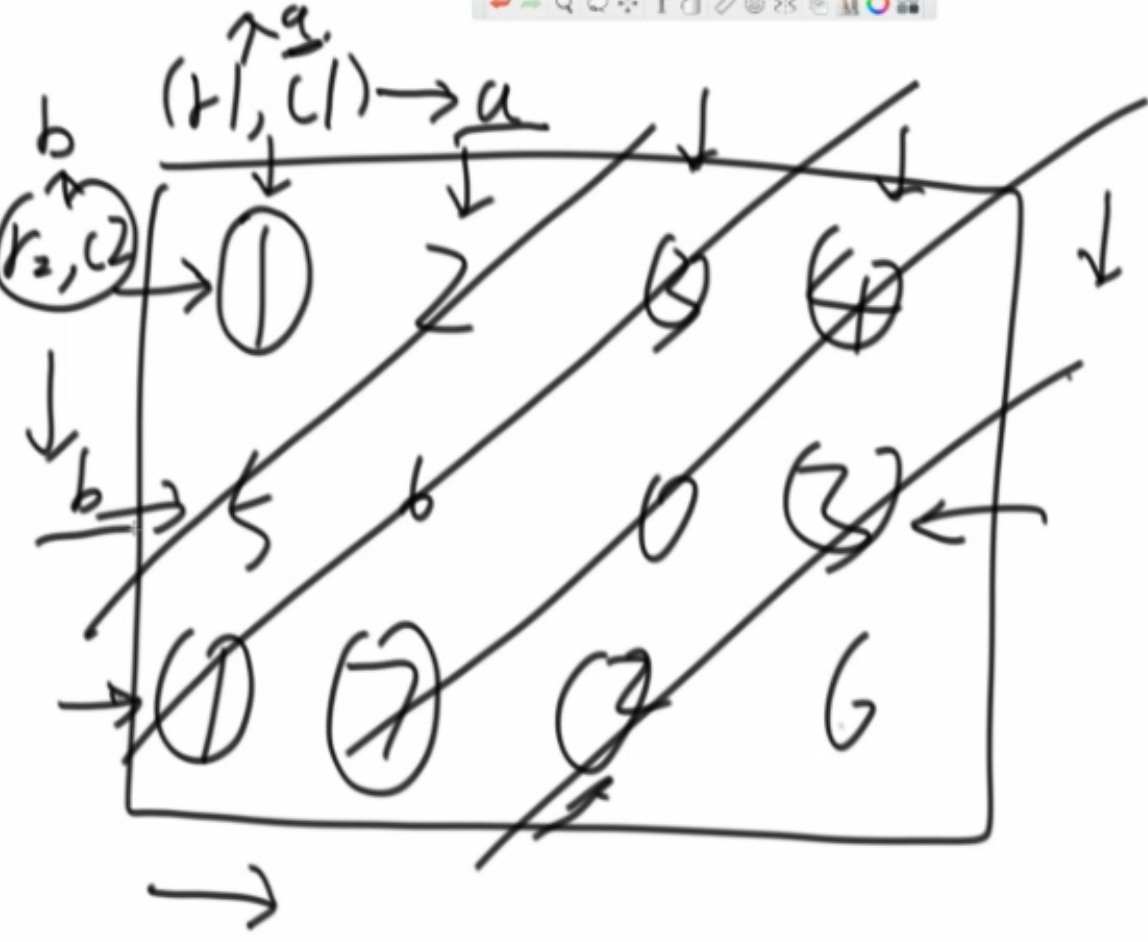 a
(r1, c1) → a
b
r2, c2
1 2 3 4
b
5 6 0 3
1 7 2 6